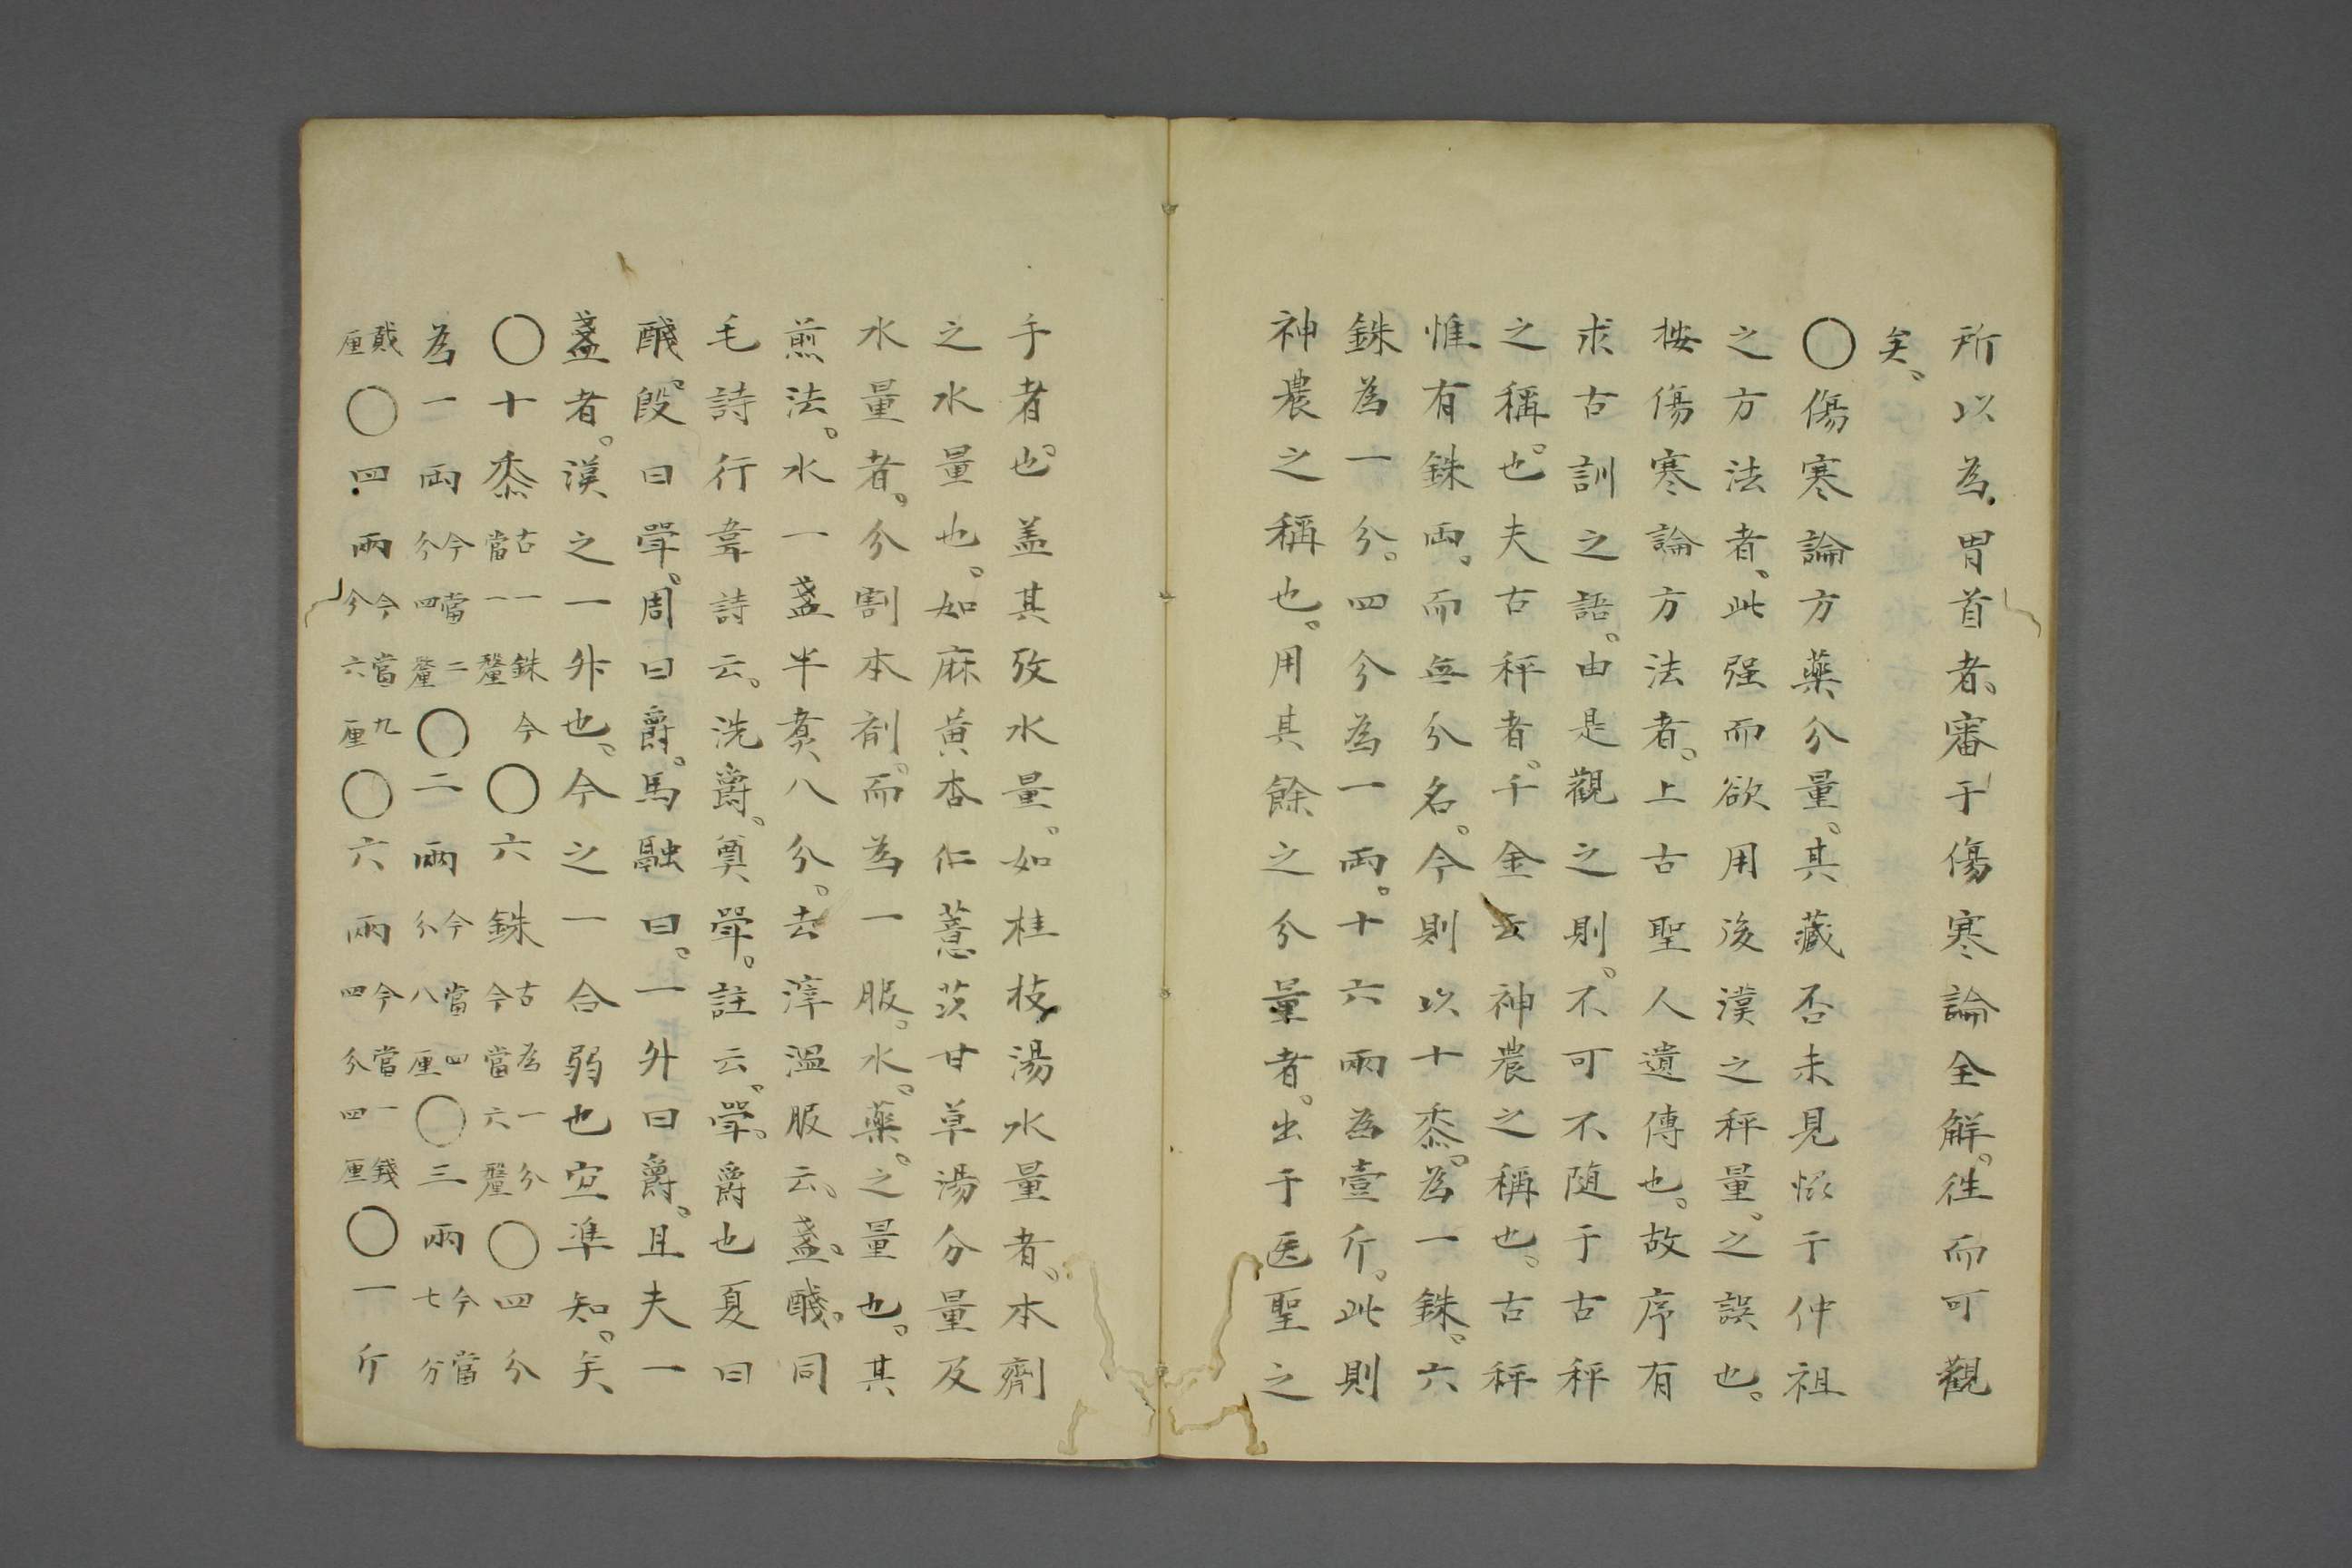 所以為胃首者、審于傷寒論全解。往而可觀
矣。
〇傷寒論方藥分量。其藏否未見悕于仲祖
之方法者、此强而欲用後漢之秤量。之誤也。
按傷寒論方法者。上古聖人遺傳也。故序有
求古訓之語。由是觀之則。不可不随于古秤
之稱也。夫古秤者。千金云神農之稱也。古秤
惟有銖両。而無分名。今則以十黍。為一銖。六
銖為一分。四分為一両。十六兩為壹斤。此則
神農之稱也。用其餘之分量者。出于医聖之
手者也。盖其攷水量。如桂枝湯水量者。本齊
之水量也。如麻黄杏仁薏苡甘草湯分量及
水量者。分割本剤。而為一服。水。藥。之量也。其
煎法。水一盞半煑八分。去滓温服云、盞。醆。同
毛詩行葦詩云。洗爵。奠斝。註云。斝。爵也夏曰
醆。殷曰斝。周曰爵。馬融曰。一升曰爵。且夫一
盞者。漢之一升也。今之一合弱也宜準知。矣
〇十黍古一銖今當一釐〇六銖古為一分今當六釐〇四分
為一両今當二分四釐〇二兩今當四分八厘〇三兩今當七分
貮厘〇四兩今當九分六厘〇六兩今當一錢四分四厘〇一斤